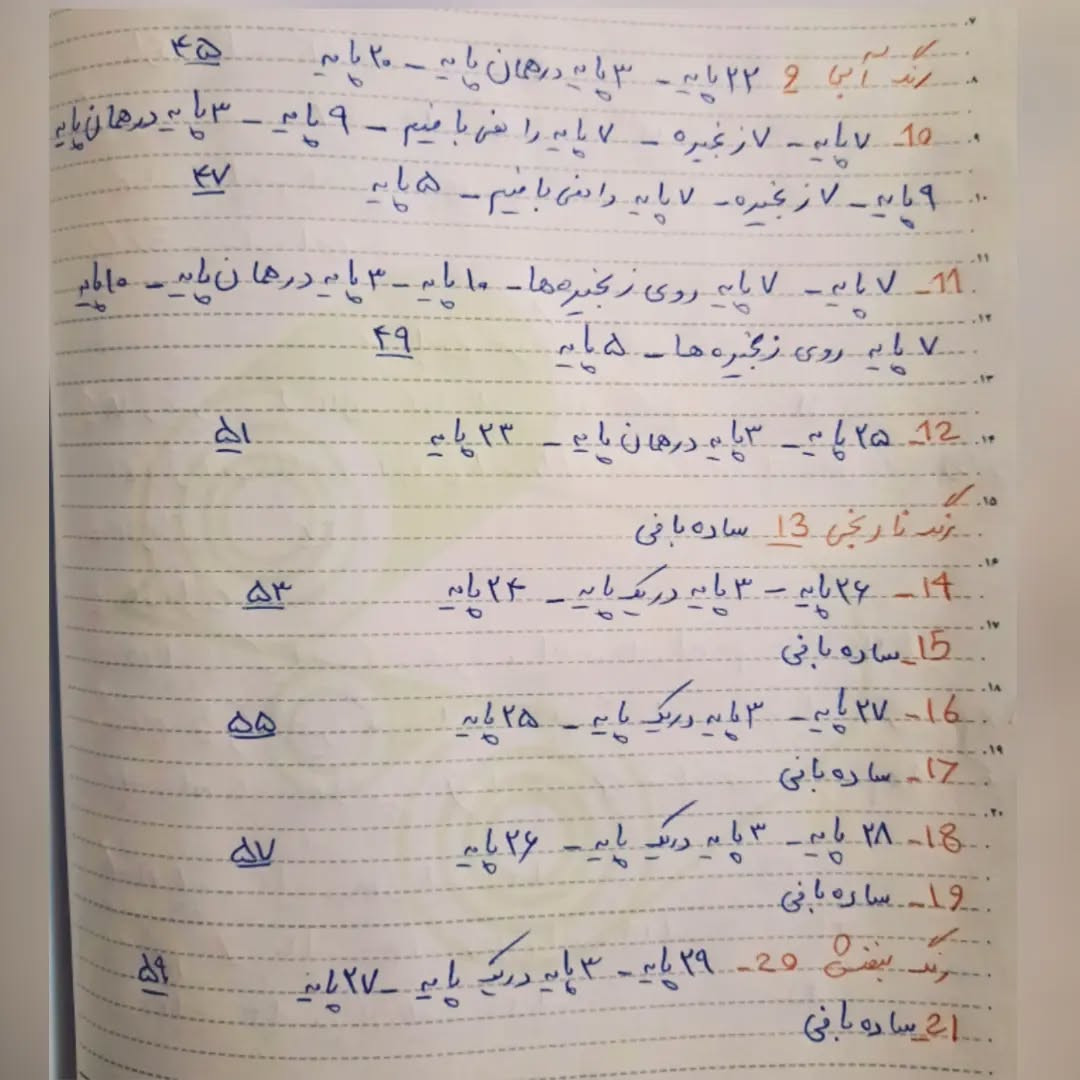 ۷.
رنگ آبی 9 ۲۲ پایه - ۳ پایه درهمان پایه - ۲۰ پایه ۴۵
۸.
10- ۷ پایه - ۷ زنجیره - ۷ پایه را نمی بافیم - ۹ پایه - ۳ پایه درهمان پایه
۹.
۹ پایه - ۷ زنجیره - ۷ پایه را نمی بافیم - ۵ پایه ۴۷
۱۰.
۱۱.
11- ۷ پایه - ۷ پایه روی زنجیره ها - ۱۰ پایه - ۳ پایه درهمان پایه - ۱۰ پایه
۱۲.
۷ پایه روی زنجیره ها - ۵ پایه ۴۹
۱۳.
12- ۲۵ پایه - ۳ پایه درهمان پایه - ۲۳ پایه ۵۱
۱۴.
۱۵.
رنگ نارنجی 13 ساده بافی
۱۶.
14- ۲۶ پایه - ۳ پایه دریک پایه - ۲۴ پایه ۵۳
۱۷.
15- ساده بافی
۱۸.
16- ۲۷ پایه - ۳ پایه دریک پایه - ۲۵ پایه ۵۵
۱۹.
17- ساده بافی
۲۰.
18- ۲۸ پایه - ۳ پایه دریک پایه - ۲۶ پایه ۵۷
19- ساده بافی
رنگ بنفش 20- ۲۹ پایه - ۳ پایه دریک پایه - ۲۷ پایه ۵۹
21- ساده بافی